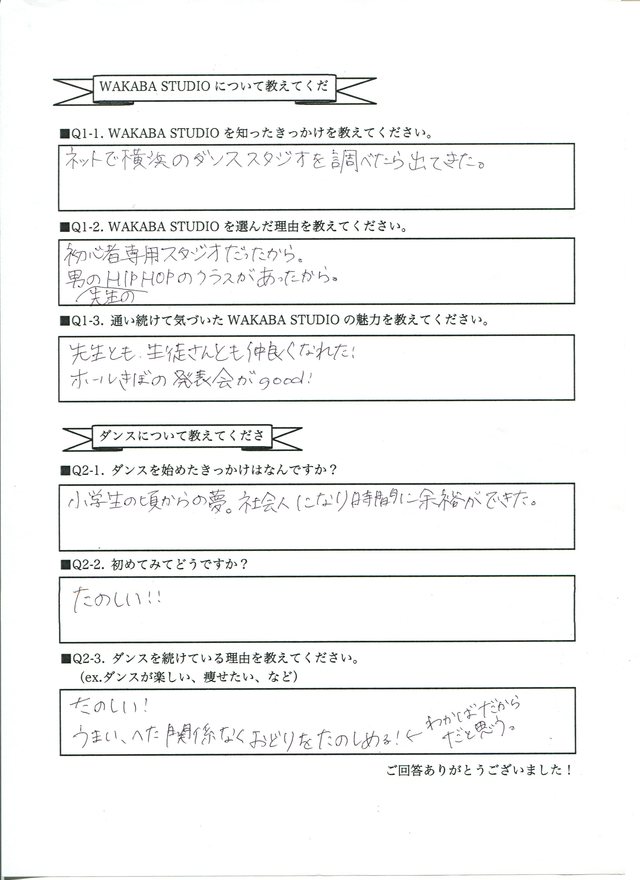 WAKABA STUDIO について教えてくだ
■Q1-1. WAKABA STUDIO を知ったきっかけを教えてください。
ネットで横浜のダンススタジオを調べたら出てきた。
■Q1-2. WAKABA STUDIO を選んだ理由を教えてください。
初心者専用スタジオだったから。
男のHIPHOPのクラスがあったから。
先生の
■Q1-3. 通い続けて気づいた WAKABA STUDIO の魅力を教えてください。
先生とも、生徒さんとも仲良くなれた!
ホールきぼの発表会がgood!
ダンスについて教えてくださ
■Q2-1. ダンスを始めたきっかけはなんですか？
小学生の頃からの夢。社会人になり時間に余裕ができた。
■Q2-2. 初めてみてどうですか？
たのしい!!
■Q2-3. ダンスを続けている理由を教えてください。
（ex.ダンスが楽しい、痩せたい、など）
たのしい!
うまい、へた関係なくおどりをたのしめる!← わかばだから
だと思う。
ご回答ありがとうございました！